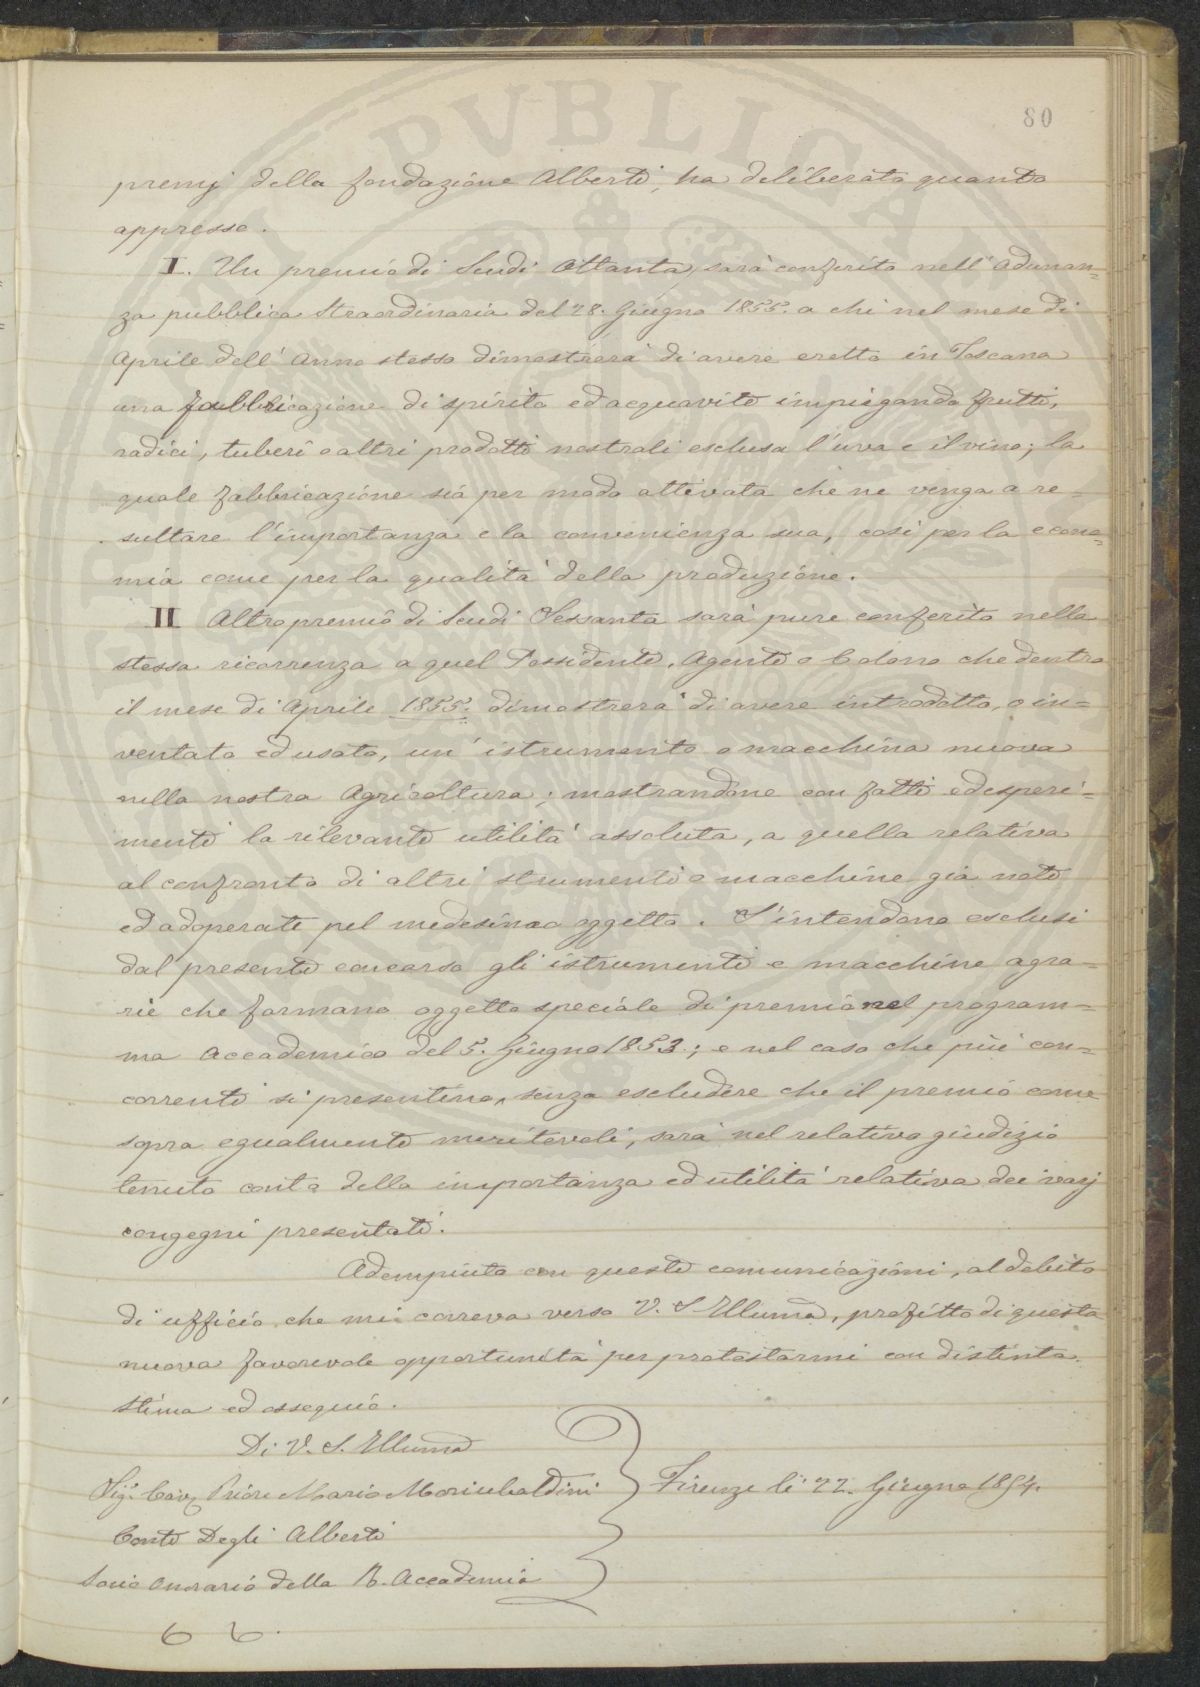 80
premj della fondazione Alberti, ha deliberato quanto
appresso.
I. Un premio di Scudi Ottanta, sarà conferito nell'Adunan=
za pubblica Straordinaria del 28. Giugno 1855. a chi nel mese di
Aprile dell'Anno stesso dimostrerà di avere eretta in Toscana
una fabbricazione di spirito ed acquavite impiegando frutti,
radici, tuberi o altri prodotti nostrali esclusa l'uva e il vino; la
quale fabbricazione sia per modo attivata che ne venga a re=
sultare l'importanza e la convenienza sua, così per la econo=
mia come per la qualità della produzione.
II Altro premio di Scudi Sessanta sarà pure conferito nella
stessa ricorrenza a quel Possidente, Agente o Colono che dentro
il mese di Aprile 1855. dimostrerà di avere introdotto, o in=
ventato ed usato, un'istrumento o macchina nuova
nella nostra Agricoltura; mostrandone con fatti ed esperi=
menti la rilevante utilità assoluta, a quella relativa
al confronto di altri strumenti o macchine già note
ed adoperate pel medesimo oggetto. S'intendono esclusi
dal presente concorso gli istrumenti e macchine agra=
rie che formano oggetto speciale di premio nel program=
ma Accademico del 5. Giugno 1853.; e nel caso che più con=
correnti si presentino, senza escludere che il premio come
sopra egualmente meritevoli, sarà nel relativo giudizio
tenuto conto della importanza ed utilità relativa dei varj
congegni presentati.
Adempiuto con queste comunicazioni, al debito
di ufficio che mi correva verso V. S. Illuma, profitto di questa
nuova favorevole opportunità per protestarmi con distinta
stima ed ossequio.
Di V. S. Illuma
Sig. Cav. Priore Mario Moriubaldini
Firenze li 22. Giugno 1854.
Conte Degli Alberti
Socio Onorario della R. Accademia